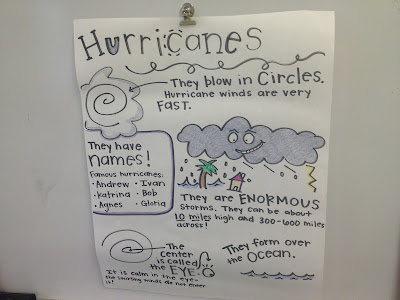 Hurricanes
They blow in Circles.
Hurricane winds are very
FAST.
They have
names!
Famous hurricanes:
• Andrew • Ivan
• Katrina • Bob
• Agnes • Gloria
They are ENORMOUS
storms. They can be about
10 miles high and 300-600 miles
across!
The
center
is called
the EYE
It is calm in the eye-
the swirling winds do not enter
it!
They form over
the Ocean.